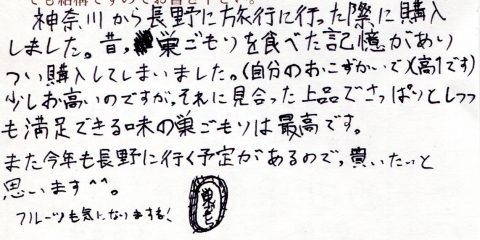 でも結構ですのでお書き下さい。
神奈川から長野に旅行に行った際に購入
しました。昔、巣ごもりを食べた記憶があり
つい購入してしまいました。(自分のおこずかいで)(高1です)
少しお高いのですが、それに見合った上品でさっぱりとしつつ
も満足できる味の巣ごもりは最高です。
また今年も長野に行く予定があるので、買いたいと
思います^^。
フルーツも気になりますし
巣ごもり